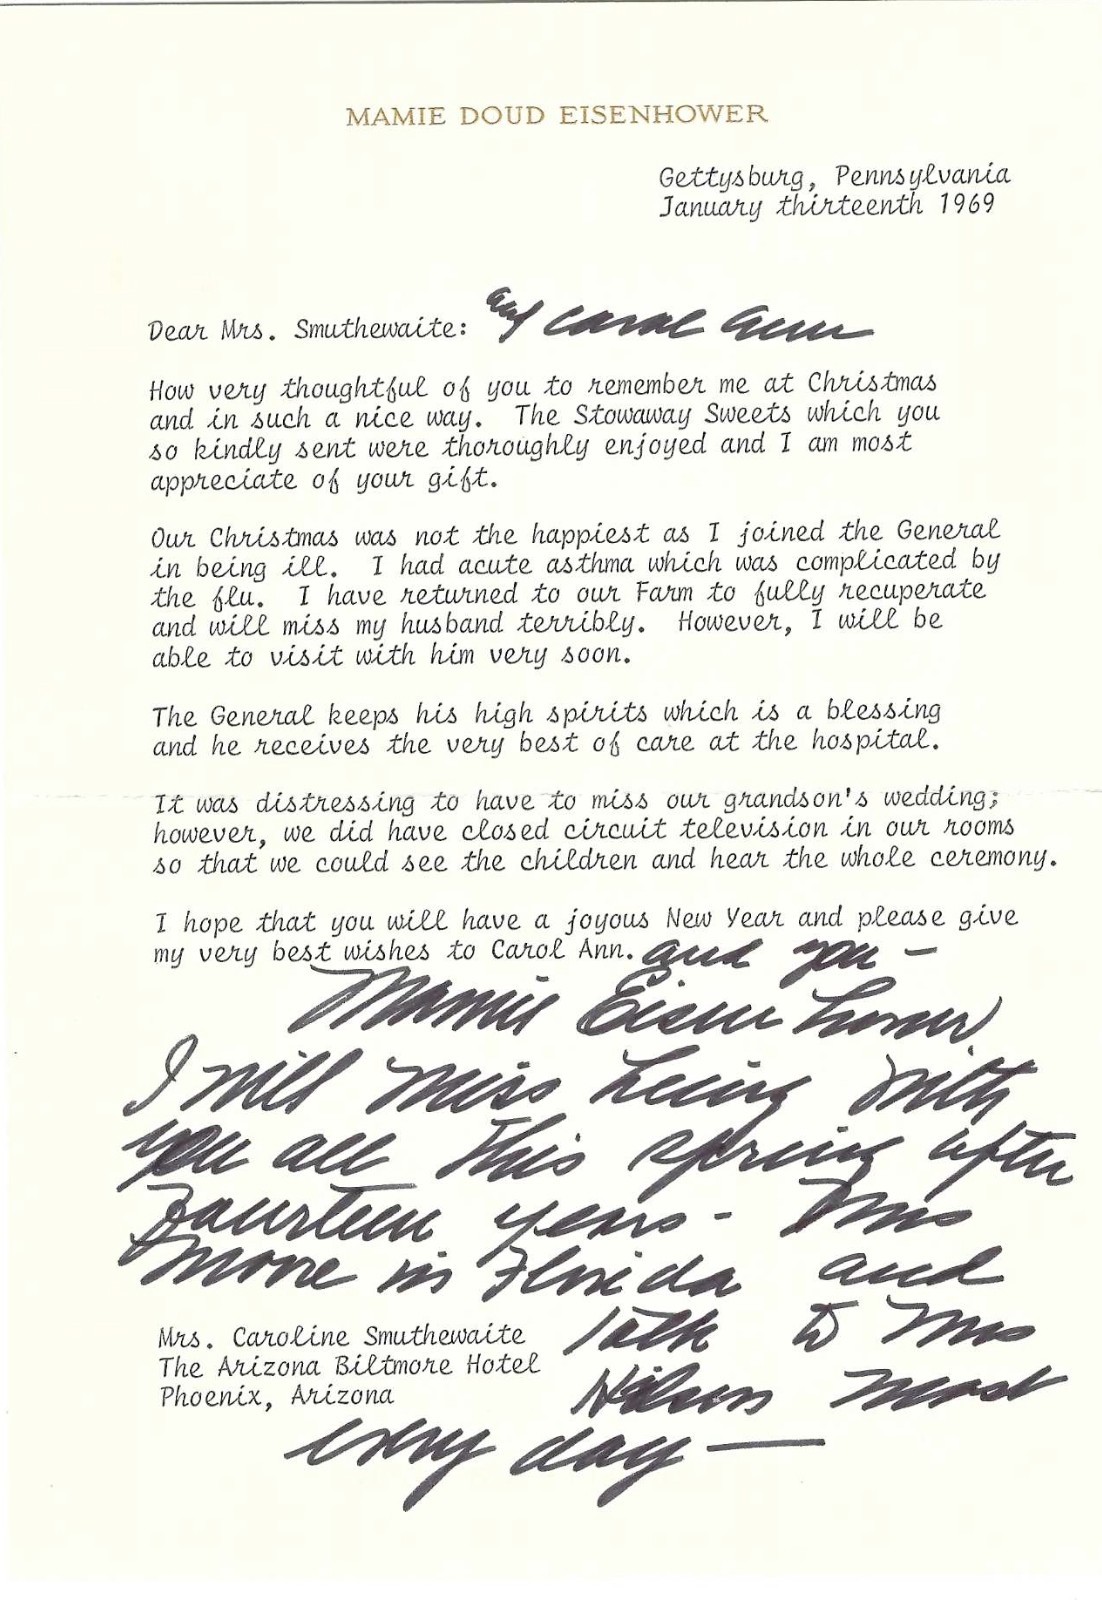 MAMIE DOUD EISENHOWER
Gettysburg, Pennsylvania
January thirteenth 1969
Dear Mrs. Smuthewaite: and Carol Ann
How very thoughtful of you to remember me at Christmas
and in such a nice way. The Stowaway Sweets which you
so kindly sent were thoroughly enjoyed and I am most
appreciate of your gift.
Our Christmas was not the happiest as I joined the General
in being ill. I had acute asthma which was complicated by
the flu. I have returned to our Farm to fully recuperate
and will miss my husband terribly. However, I will be
able to visit with him very soon.
The General keeps his high spirits which is a blessing
and he receives the very best of care at the hospital.
It was distressing to have to miss our grandson's wedding;
however, we did have closed circuit television in our rooms
so that we could see the children and hear the whole ceremony.
I hope that you will have a joyous New Year and please give
my very best wishes to Carol Ann. and you -
Mamie Eisenhower
I will miss being with
you all this spring after
Fourteen years - Mrs
in Florida and
Talk to Mrs
most
every day —
Mrs. Caroline Smuthewaite
The Arizona Biltmore Hotel
Phoenix, Arizona